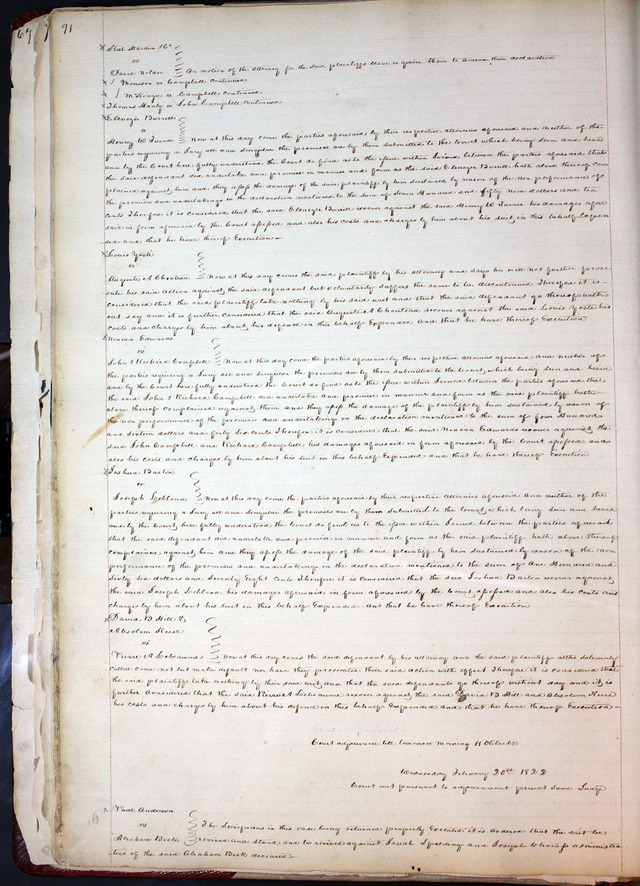 67
91
x Stul Hardin &c
vs
David Nolan On motion of the attorney for the said plaintiffs leave is given them to amend their declaration
x Morrison vs Campbell continued
x McKenzie vs Campbell continued
x Thomas Hanly vs John Campbell continued
x Ebenezer Burrell
vs
Henry W Turner Now at this day come the parties aforesaid by their respective attornies aforesaid and neither of the
parties requiring a Jury all and singular the premises are by them submitted to the Court which being seen and heard
and by the Court here fully understood the Court do find as to the issue within Joined between the parties aforesaid that
the said defendant did undertake and promise in manner and form as the said Ebenezer Burrell hath alone thereof com
plained against him and they assess the damage of the said plaintiff by him sustained by reason of the non performance of
the promises and undertakings in the declaration mentioned to the sum of Seven Hundred and fifty Nine dollars and ten
cents Therefore it is considered that the said Ebenezer Burrell recover against the said Henry W Turner his damages afore
said in form aforesaid by the Court assessed and also his costs and charges by him about his suit in this behalf Expen
ded and that he have thereof Execution
x Louis Yostic
vs
Auguste A Chouteau Now at this day comes the said plaintiff by his attorney and says he will not further prose
cute his said action against the said defendant but voluntarily suffers the same to be discontinued Therefore it is
considered that the said plaintiff take nothing by his said writ and that the said defendant go thereof with
out day and it is further considered that the said Auguste A Chouteau recover against the said Louis Yostic his
costs and charges by him about his defence in this behalf Expended and that he have thereof Execution
x Ninian Edwards
vs
John & Richard Campbell Now at this day come the parties aforesaid by their respective attornies aforesaid And neither of
the parties requiring a Jury all and singular the premises are by them submitted to the Court which being seen and heard
and by the Court here fully understood the Court do find as to the issue within Joined between the parties aforesaid that
the said John & Richard Campbell did undertake and promise in manner and form as the said plaintiff hath
above thereof complained against them and they assess the damage of the plaintiff by him sustained by reason of
the non performance of the promises and undertakings in the declaration mentioned to the sum of four Hundred
and sixteen dollars and forty Six cents Therefore it is considered that the said Ninian Edwards recover against the
said John Campbell and Richard Campbell his damages aforesaid in form aforesaid by the Court assessed and
also his costs and charges by him about his suit in this behalf Expended and that he have thereof Execution
x Joshua Barton
vs
Joseph Leblond Now at this day come the parties aforesaid by their respective attornies aforesaid And neither of the
parties requiring a Jury all and singular the premises are by them Submitted to the Court which being seen and heard
and by the Court here fully understood the Court do find as to the issue within Joined between the parties aforesaid
that the said defendant did undertake and promise in manner and form as the said plaintiff hath above thereof
complained against him and they assess the damage of the said plaintiff by him sustained by reason of the non
performance of the promises and undertakings in the declaration mentioned to the sum of One Hundred and
Sixty six dollars and Seventy Eight Cents Therefore it is considered that the said Joshua Barton recover against
the said Joseph Leblond his damages aforesaid in form aforesaid by the Court assessed and also his costs and
charges by him about his suit in this behalf Expended and that he have thereof Execution
x David B Hill &
Absolom House
vs
Pierre A Lebeaume Now at this day comes the said defendant by his attorney and the said plaintiff altho Solemnly
called come not but make default nor have they prosecuted their said action with effect Therefore it is considered that
the said plaintiffs take nothing by their said writ and that the said defendants go thereof without day and it is
further considered that the said Pierre A Lebeaume recover against the said David B Hill and Absolom House
his costs and charges by him about his defence in this behalf Expended and that he have thereof Execution
Court adjourned till tomorrow morning 10 OClock
Wednesday February 20th 1822
Court met pursuant to adjournment present Same Judge
x Paul Anderson
vs
The Scirefacias in this case being returned properly Executed it is ordered that the suit be
Abraham Beck revived and Stand and be revived against Josiah Spalding and Joseph Charless administra
tors of the said Abraham Beck deceased